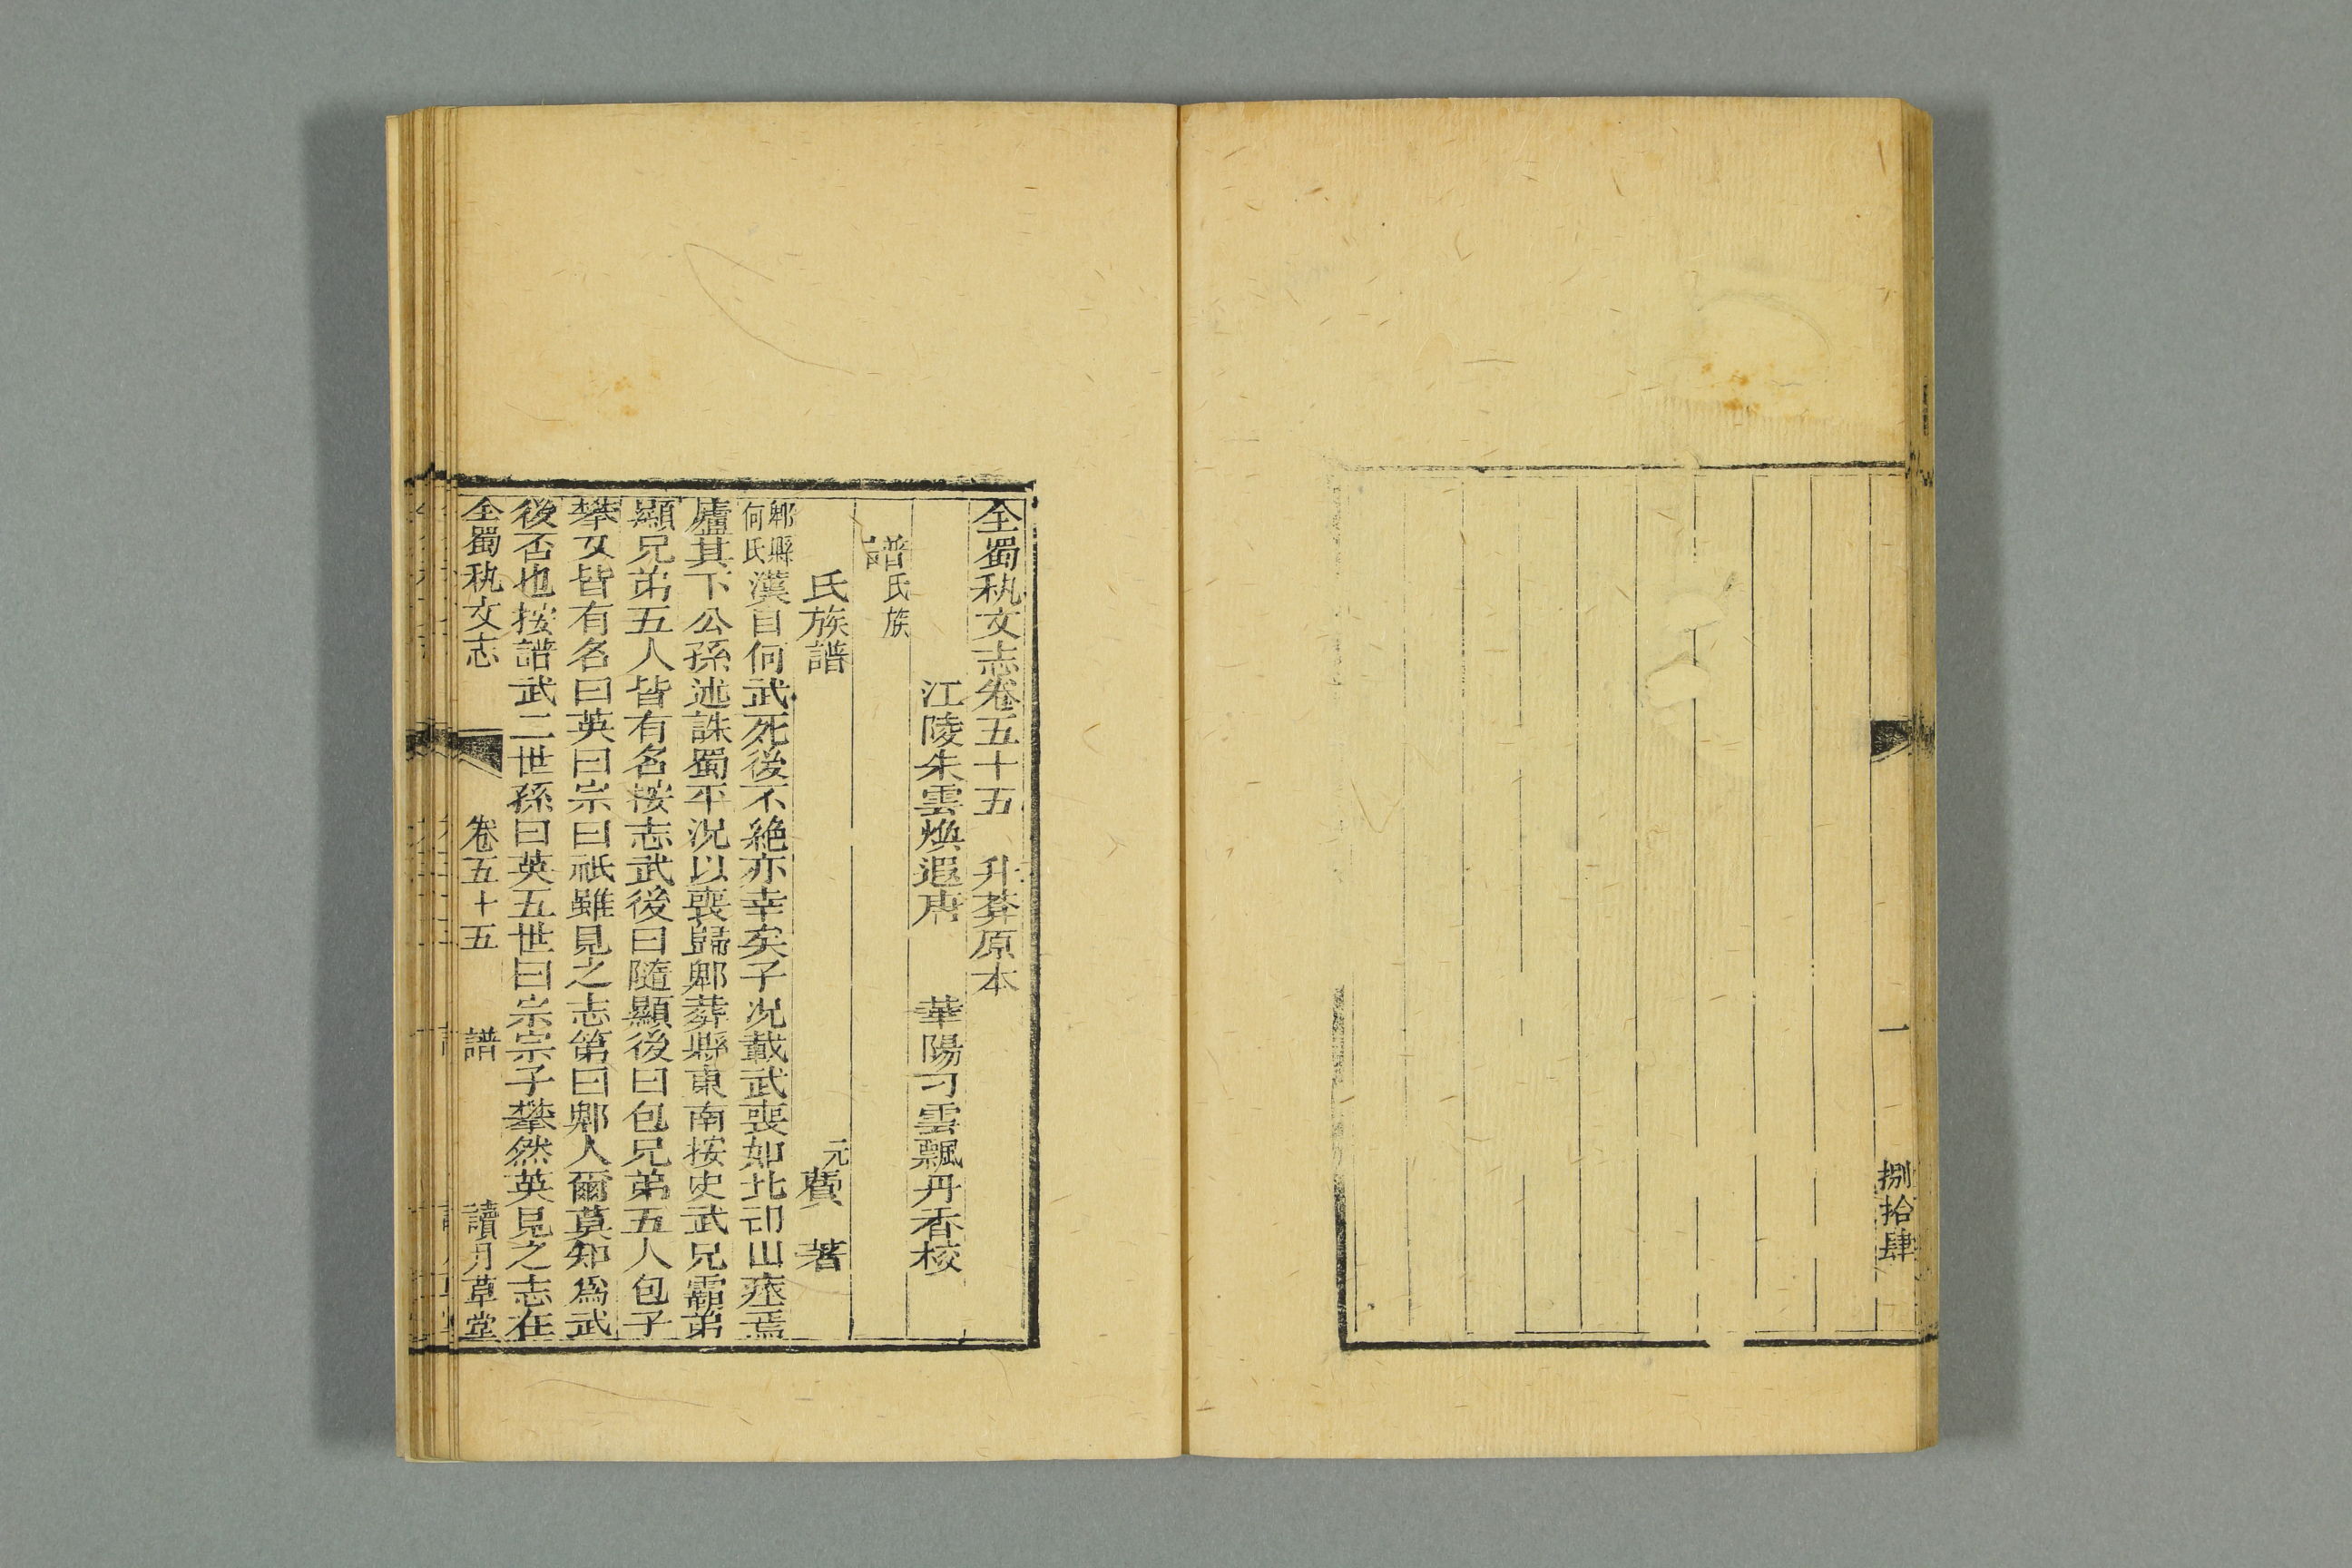 一　捌拾肆
全蜀秇文志卷五十五　升菴原本
江陵朱雲煥遐唐　華陽刁雲飄丹香校
譜氏族
氏族譜　元費　著
郫縣何氏漢自何武死後不絶亦幸矣子況載武喪如北邙山瘞焉
廬其下公孫述誅蜀平況以喪歸郫葬縣東南按史武兄霸弟
顯兄弟五人皆有名按志武後曰隨顯後曰包兄弟五人包子
攀攵皆有名曰英曰宗曰祇雖見之志第曰郫人爾莫知爲武
後否也按譜武二世孫曰英五世曰宗宗子攀然英見之志在
全蜀秇文志　卷五十五　譜　讀月草堂